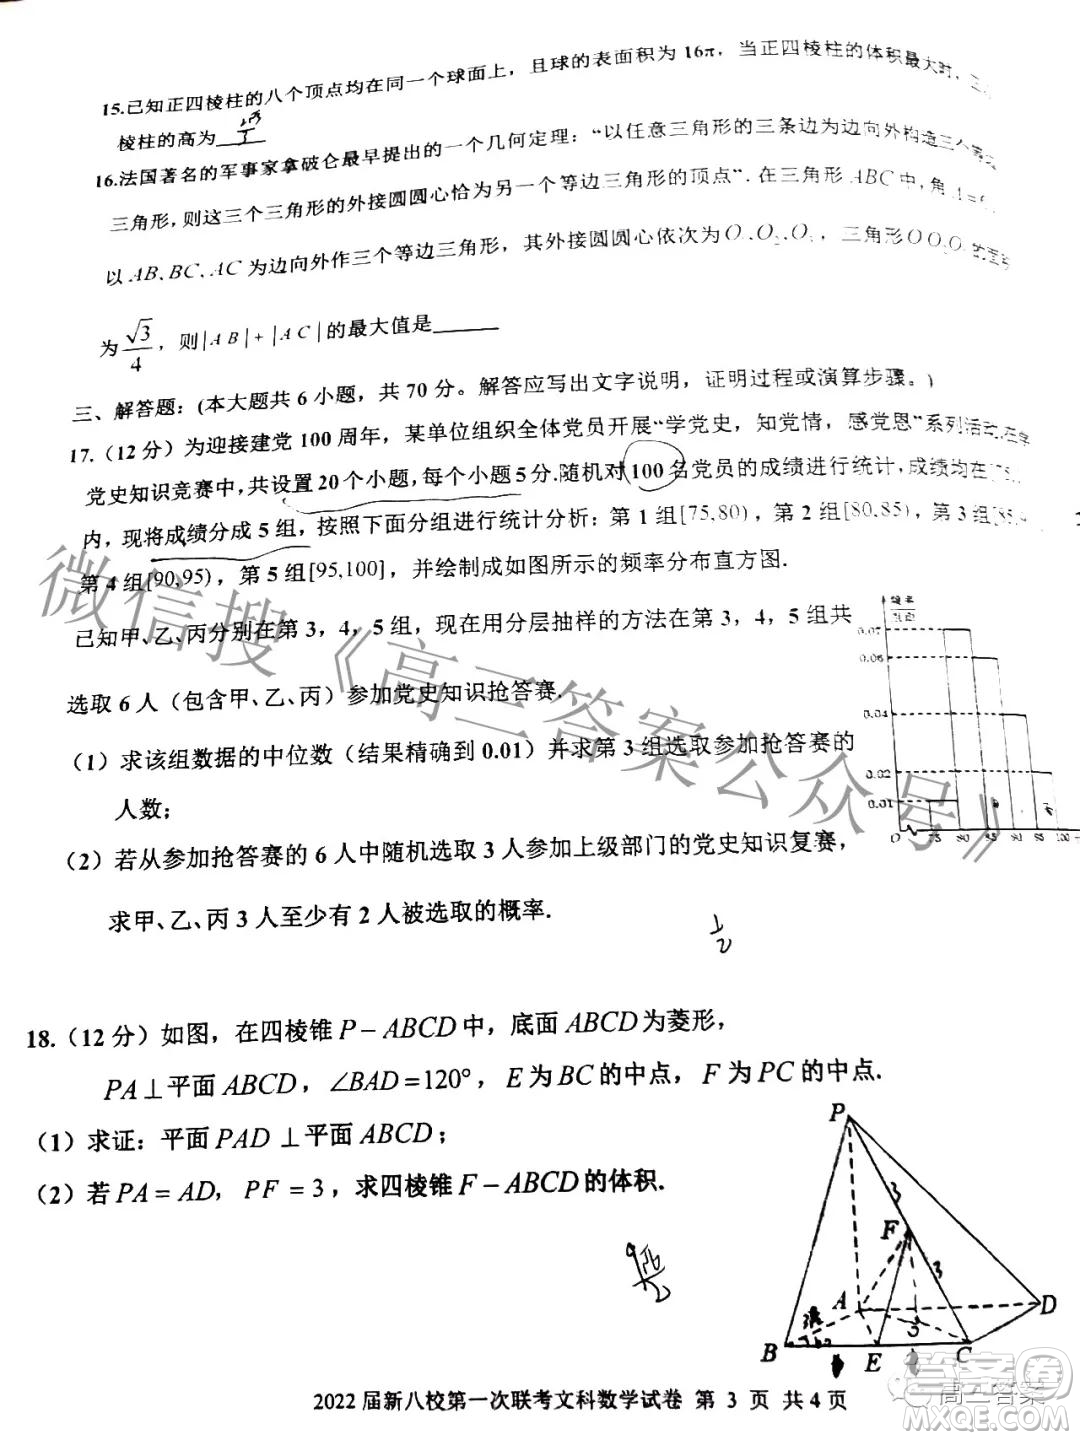 15.已知正四棱柱的八个顶点均在同一个球面上，且球的表面积为 16π，当正四棱柱的体积最大时，正
棱柱的高为
16.法国著名的军事家拿破仑最早提出的一个几何定理：“以任意三角形的三条边为边向外构造三个等边
三角形，则这三个三角形的外接圆圆心恰为另一个等边三角形的顶点”. 在三角形 ABC 中，角 A =
以 AB、BC、AC 为边向外作三个等边三角形，其外接圆圆心依次为 O₁,O₂,O₃，三角形 O₁O₂O₃ 的面积
为 √3/4，则|AB|+|AC|的最大值是______
三、解答题：(本大题共 6 小题，共 70 分。解答应写出文字说明，证明过程或演算步骤。)
17.（12 分）为迎接建党 100 周年，某单位组织全体党员开展“学党史，知党情，感党恩”系列活动.在学
党史知识竞赛中，共设置 20 个小题，每个小题 5 分.随机对 100 名党员的成绩进行统计，成绩均在[75,
内，现将成绩分成 5 组，按照下面分组进行统计分析：第 1 组[75,80)，第 2 组[80,85)，第 3 组[85,
第 4 组[90,95)，第 5 组[95,100]，并绘制成如图所示的频率分布直方图.
已知甲、乙、丙分别在第 3，4，5 组，现在用分层抽样的方法在第 3，4，5 组共
选取 6 人（包含甲、乙、丙）参加党史知识抢答赛.
（1）求该组数据的中位数（结果精确到 0.01）并求第 3 组选取参加抢答赛的
人数；
（2）若从参加抢答赛的 6 人中随机选取 3 人参加上级部门的党史知识复赛，
求甲、乙、丙 3 人至少有 2 人被选取的概率.
频率
组距
0.07
0.06
0.04
0.02
0.01
O 75 80 85 90 95 100
1/2
18.（12 分）如图，在四棱锥 P－ABCD 中，底面 ABCD 为菱形，
PA⊥平面 ABCD，∠BAD＝120°，E 为 BC 的中点，F 为 PC 的中点.
（1）求证：平面 PAD⊥平面 ABCD；
（2）若 PA＝AD，PF＝3，求四棱锥 F－ABCD 的体积.
P
3
F
3
A
D
B
E
C
2022 届新八校第一次联考文科数学试卷 第 3 页 共 4 页
微信搜《高三答案公众号》
高三答案
答案圈
MXQE.COM